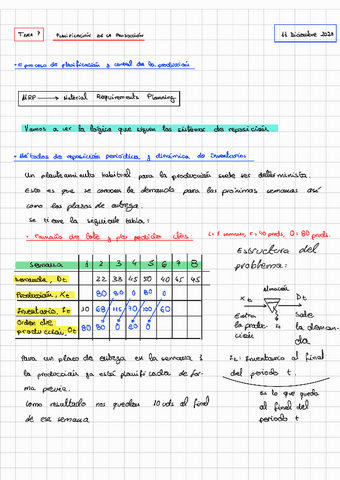 Tema 7 PLANIFICACIÓN DE LA PRODUCCIÓN 11 Diciembre 2023
- El proceso de planificación y control de la producción
MRP → Material Requirements Planning
Vamos a ver la lógica que siguen los sistemas de reposición.
- Métodos de reposición periódica y dinámica de inventarios
Un planteamiento habitual para la producción suele ser determinista.
Esto es que se conocen la demanda para las próximas semanas así
como los plazos de entrega.
Se tiene la siguiente tabla:
- Tamaño de lote y plazo pedidos fijos.
Semana 1 2 3 4 5 6 7 8
Demanda, Dt 22 33 45 50 40 45 45
Producción, Xt 80 80 0 80 0
Inventario, It 10 68 115 70 100 60
Orden de
producción, Ot 80 80 0 80 0
Para un plazo de entrega en la semana 1
la producción ya está planificada de for-
ma previa.
Como resultado nos quedan 10 uds al final
de esa semana
Estructura del
problema:
almacén
Xt Dt
Entra
la produc-
ción
Sale
la deman-
da
It: Inventario al final
del periodo t.
Es lo que queda
al final del
periodo t